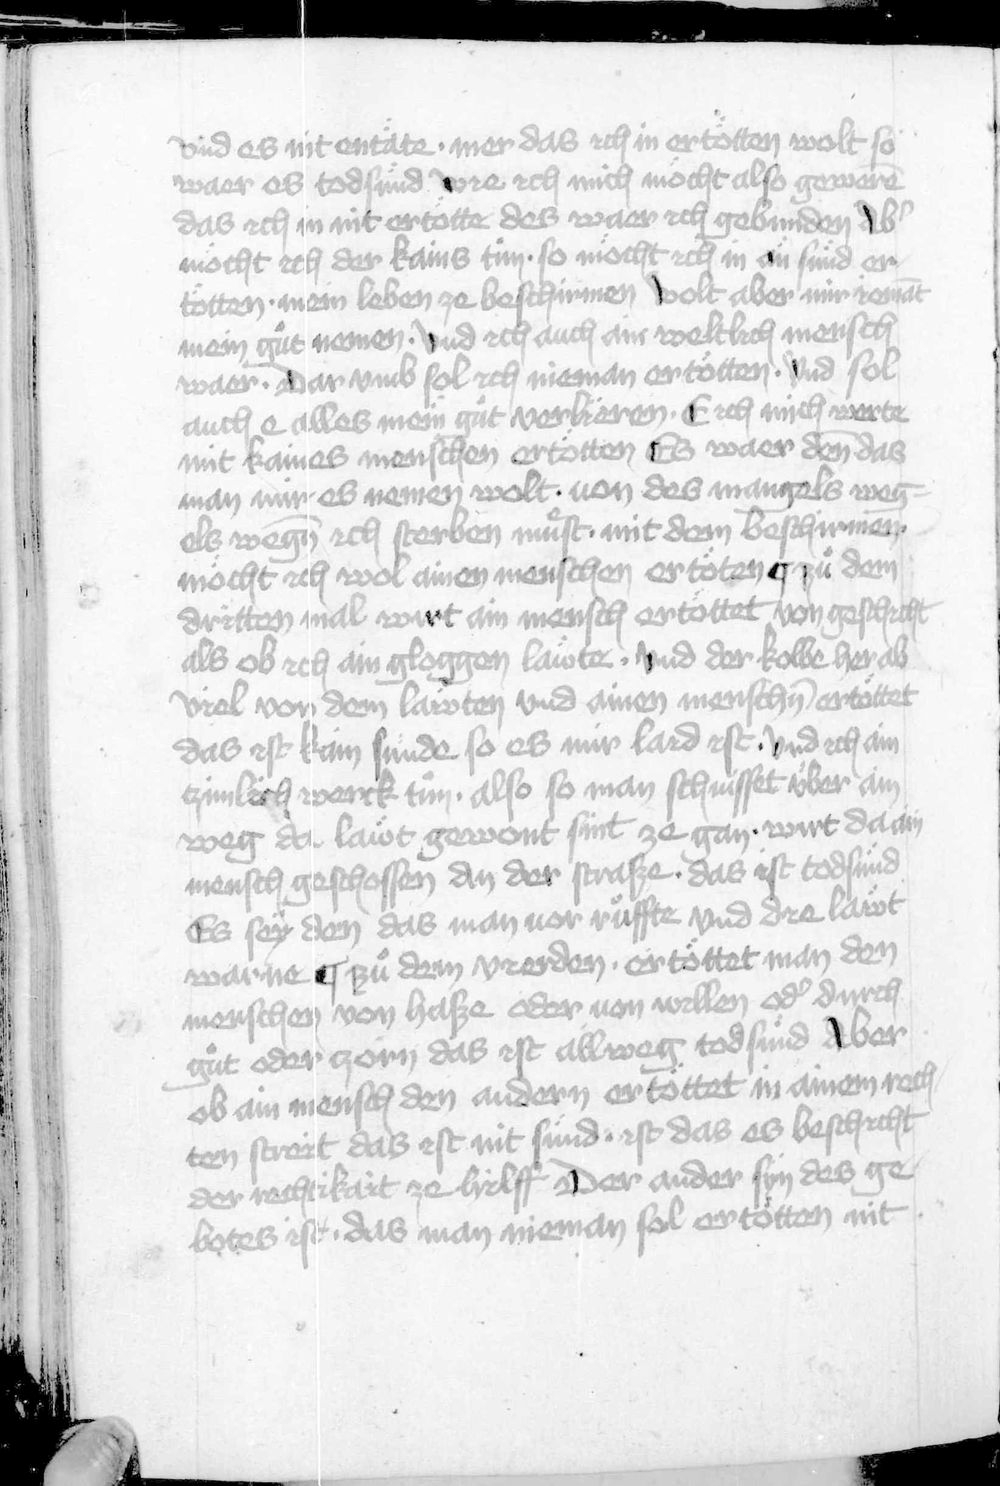 vnd es nit entäte · mer das ich in ertötten wolt so
waer es todsünd Wie ich mich möcht also gewerē
das ich in nit ertötte des waer ich gebunden Ab᾽
möcht ich der kains tůn · so möcht ich in ān sünd er
tötten · mein leben ze beschirmen Wolt aber mir iemāt
mein gůt nemen · Vnd ich auch ain weltlich mensch
waer · Dar vmb sol ich nieman ertötten · Vnd sol
auch e alles mein gůt verlieren · E ich mich werte
mit kaines menschen ertötten Es waer deñ das
man mir es nemen wolt · von des mangels weg=
els wegñ ich sterben můst · mit dem beschirmen ·
möcht ich wol ainen menschen ertöten ¶ zů dem
dritten mal wirt ain mensch ertöttet von geschicht
als ob ich ain gloggen läwte · Vnd der kolbe her ab
viel von dem läwten vnd ainen menschñ ertöttet
das ist kain sünde so es mir laid ist · Vnd ich ain
zimlich werck tůn · also so man schüsset über ain
weg da läwt gewont sint ze gan · wirt da ain
mensch geschossen an der strasze · das ist todsünd
Es seÿ den das man vor růffte vnd die läwt
warne ¶ zů dem vierden · ertöttet man den
menschen von hasze oder von willen od᾽ durch
gůt oder zorn das ist allweg todsünd Aber
ob ain mensch den andern ertöttet in ainem rech
ten streit das ist nit sünd · ist das es beschicht
der rechtikait ze hilff Der ander syn des ge
botes ist · das man nieman sol ertötten mit